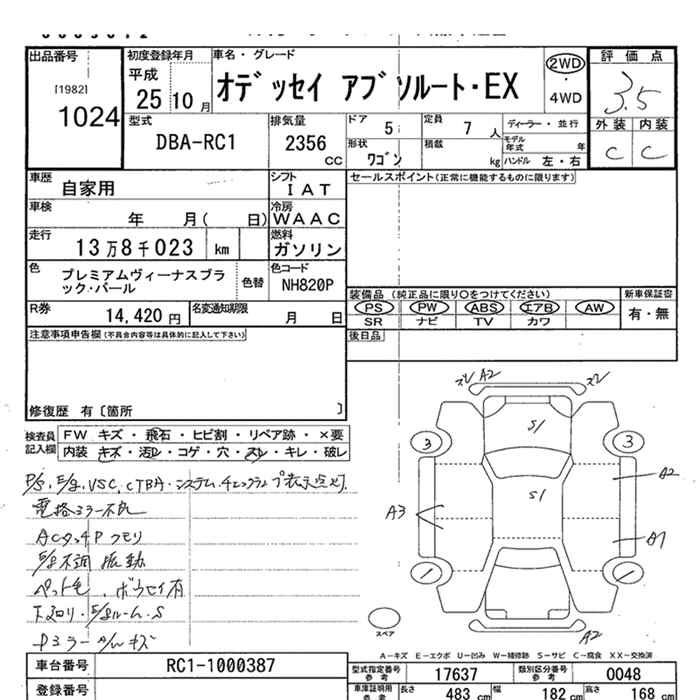 出品番号 初度登録年月 車名・グレード 評価点
[1982] 平成 オデッセイ アブソルート・EX 2WD ・ 4WD 3.5
1024 25 10月 外装 内装
型式 排気量 ドア 5 定員 7人 ディーラー・並行 C C
DBA-RC1 2356 CC 形状 ワゴン 積載 kg モデル年式 年
ハンドル 左・右
車歴 自家用 シフト IAT セールスポイント(正常に機能するものに限ります)
車検 年 月( 日) 冷房 WAAC
走行 13万8千023 km 燃料 ガソリン
色 プレミアムヴィーナスブラック・パール 色替 色コード NH820P
装備品 (純正品に限り○をつけてください) 新車保証書
R券 14,420円 名変通知期限 月 日 PS PW ABS エアB AW 有・無
SR ナビ TV カワ
注意事項申告欄(不具合内容等は具体的に記入して下さい) 後日品
修復歴 有〔箇所 〕
検査員記入欄 FW キズ・飛石・ヒビ割・リペア跡・×要
内装 キズ・汚レ・コゲ・穴・スレ・キレ・破レ
A2
S1
3 3
S1 A2
A3
A1
電格ミラー不良
ACタッチP クモリ
E/g不調 振動
ペット毛
スペア A2
A-キズ E-エクボ U-凹み W-補修跡 S-サビ C-腐食 XX-交換済
車台番号 RC1-1000387 型式指定番号 参考 17637 類別区分番号 参考 0048
登録番号 車庫証明用 参考 長さ 483 cm 幅 182 cm 高さ 168 cm